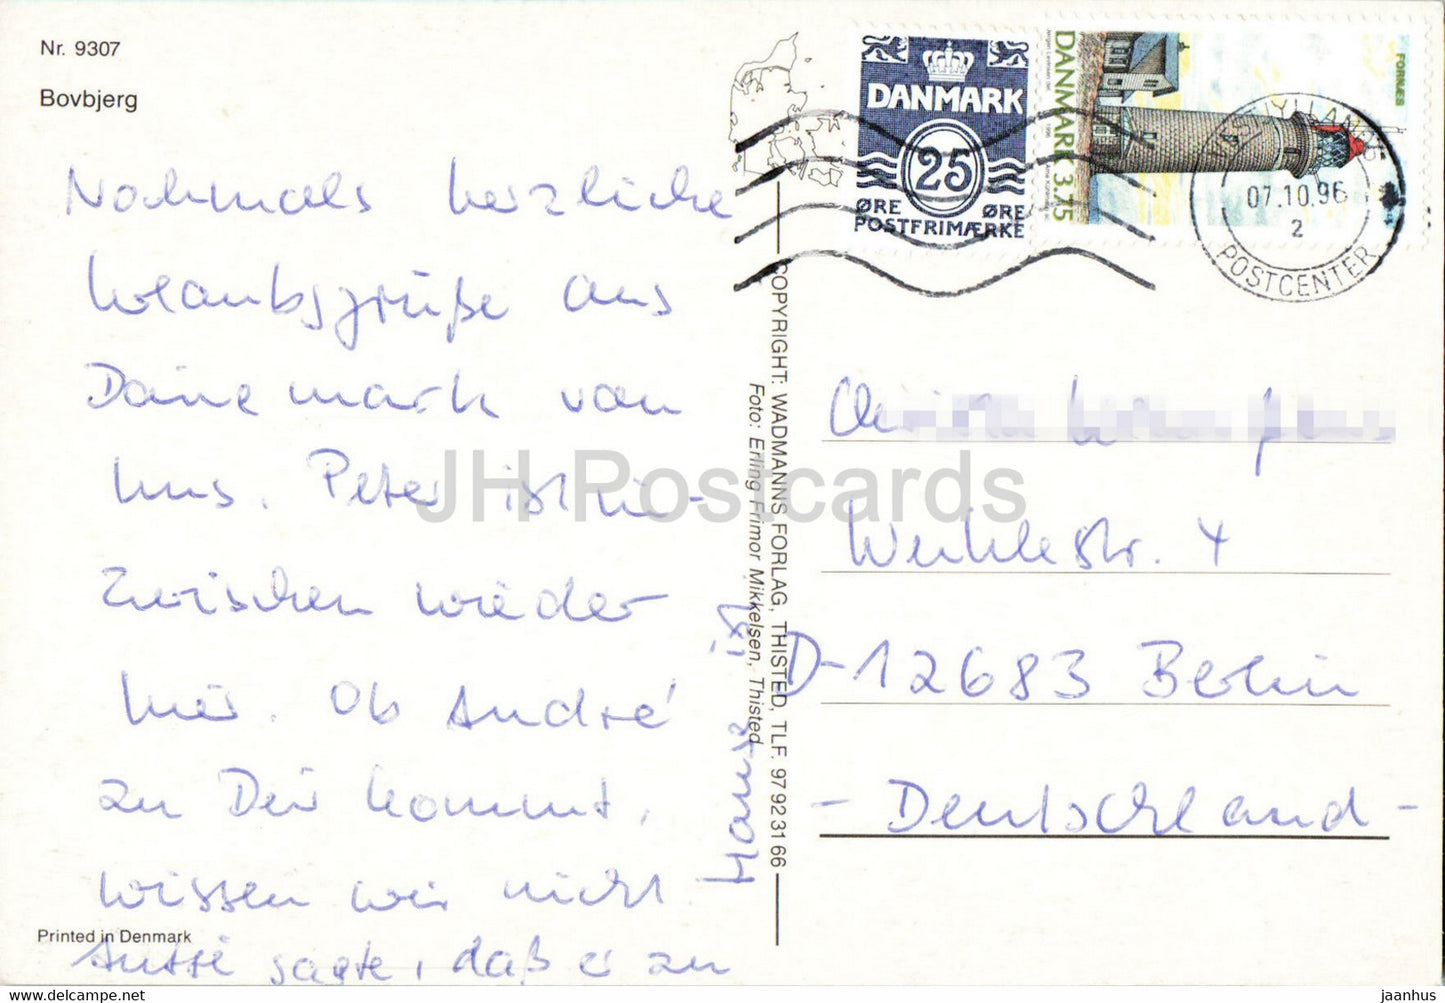 Nr. 9307
Bovbjerg
Nochmals herzliche
Urlaubsgrüße aus
Dänemark von
uns. Peter ist in-
zwischen wieder
hier. Ob André
zu Dir kommt,
wissen wir nicht
sagte, daß er zu
Hause ist
Printed in Denmark
COPYRIGHT: WADMANNS FORLAG, THISTED, TLF. 97 92 31 66
Foto: Erling Frimor Mikkelsen, Thisted
DANMARK
25
ØRE ØRE
POSTFRIMÆRKE
DANMARK 3.75
FORNÆS
1996
07.10.96
2
POSTCENTER
str. 4
D-12683 Berlin
- Deutschland -
JH Postcards
www.delcampe.net
jaanhus